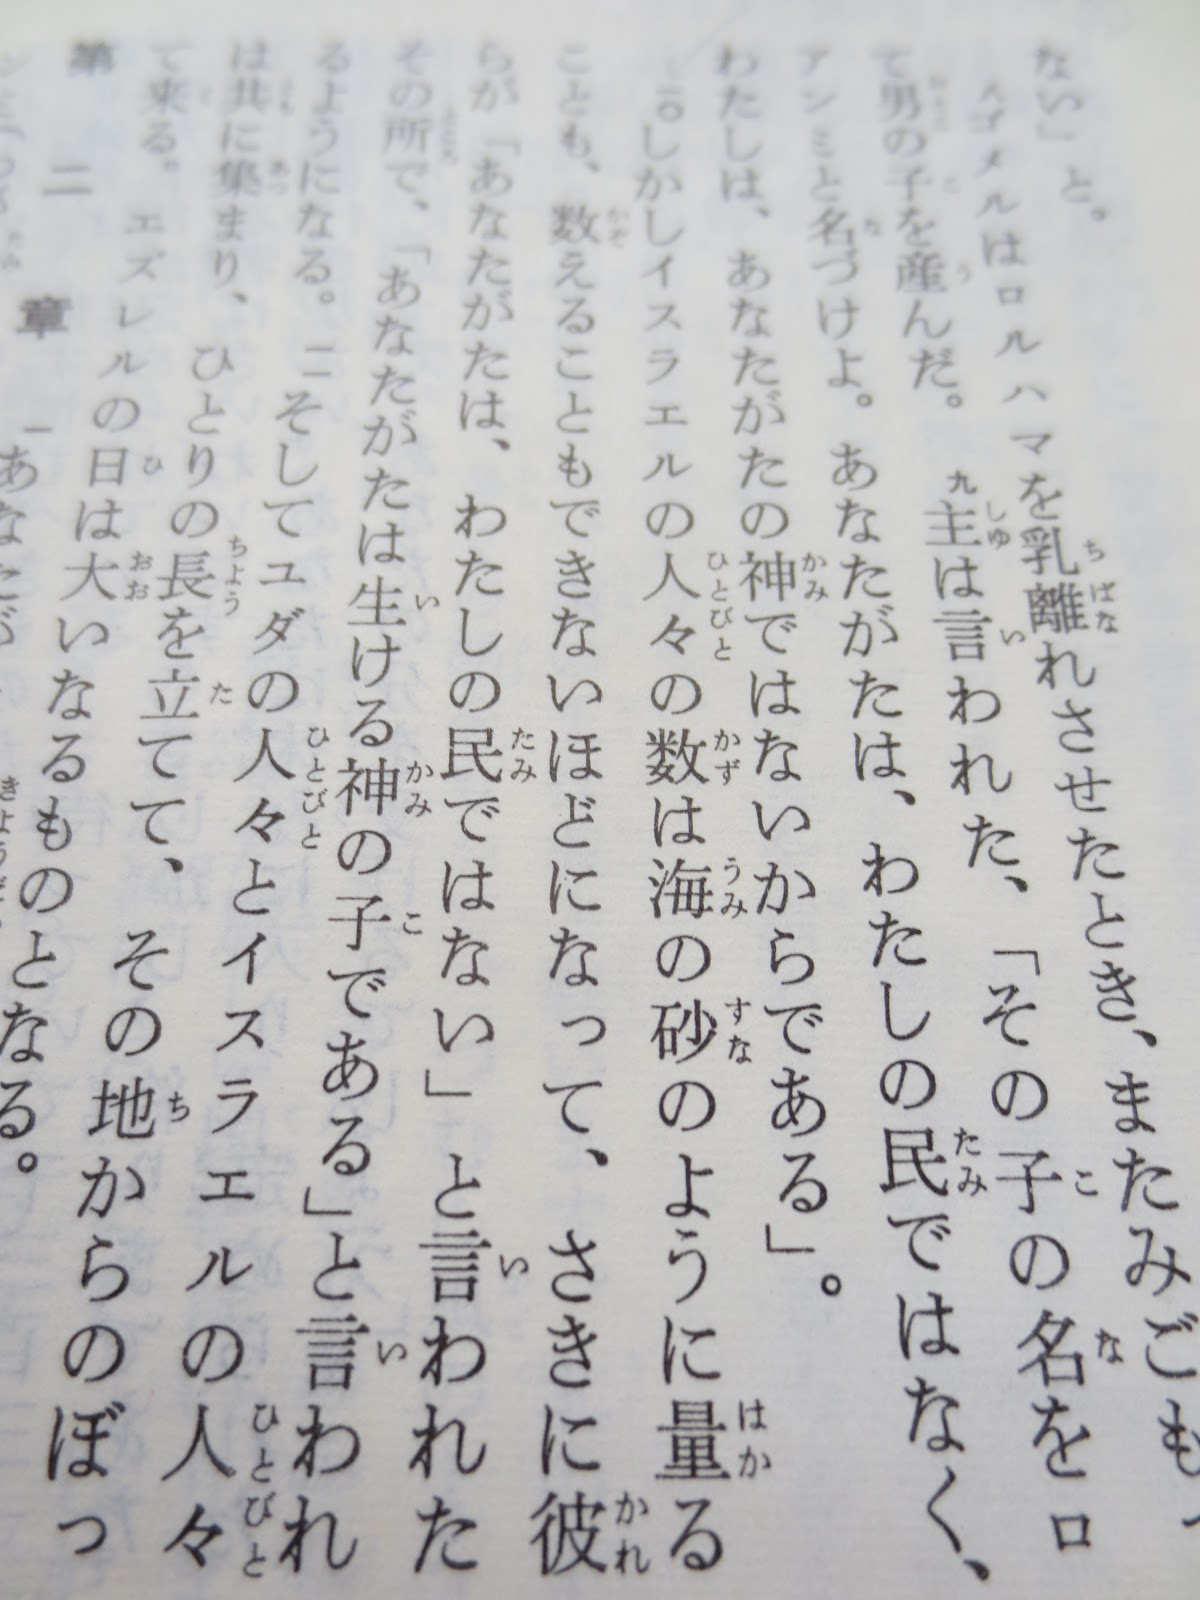 ない」と。
八ゴメルはロルハマを乳離れさせたとき、またみごもっ
て男の子を産んだ。九主は言われた、「その子の名をロ
アンミと名づけよ。あなたがたは、わたしの民ではなく、
わたしは、あなたがたの神ではないからである」。
一〇しかしイスラエルの人々の数は海の砂のように量る
ことも、数えることもできないほどになって、さきに彼
らが「あなたがたは、わたしの民ではない」と言われた
その所で、「あなたがたは生ける神の子である」と言われ
るようになる。一一そしてユダの人々とイスラエルの人々
は共に集まり、ひとりの長を立てて、その地からのぼっ
て来る。エズレルの日は大いなるものとなる。
第二章 一あなたが